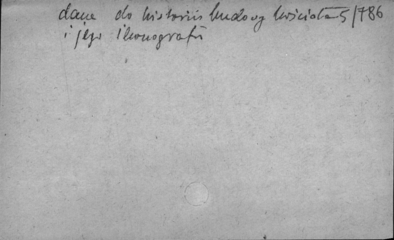 dane do historii budowy kościoła 5/786
i jego ikonografii